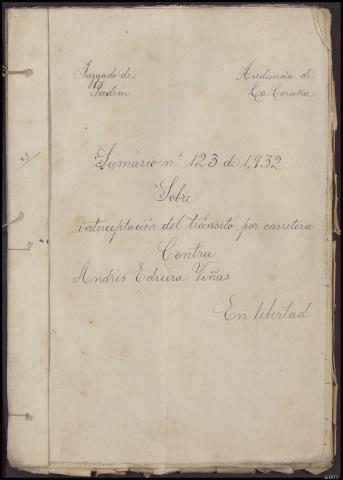 Juzgado de
Padrón
Audiencia de
La Coruña
Sumario nº 123 de 1.932
Sobre
interceptación del tránsito por carretera
Contra
Andrés Edreira Viñas
En libertad